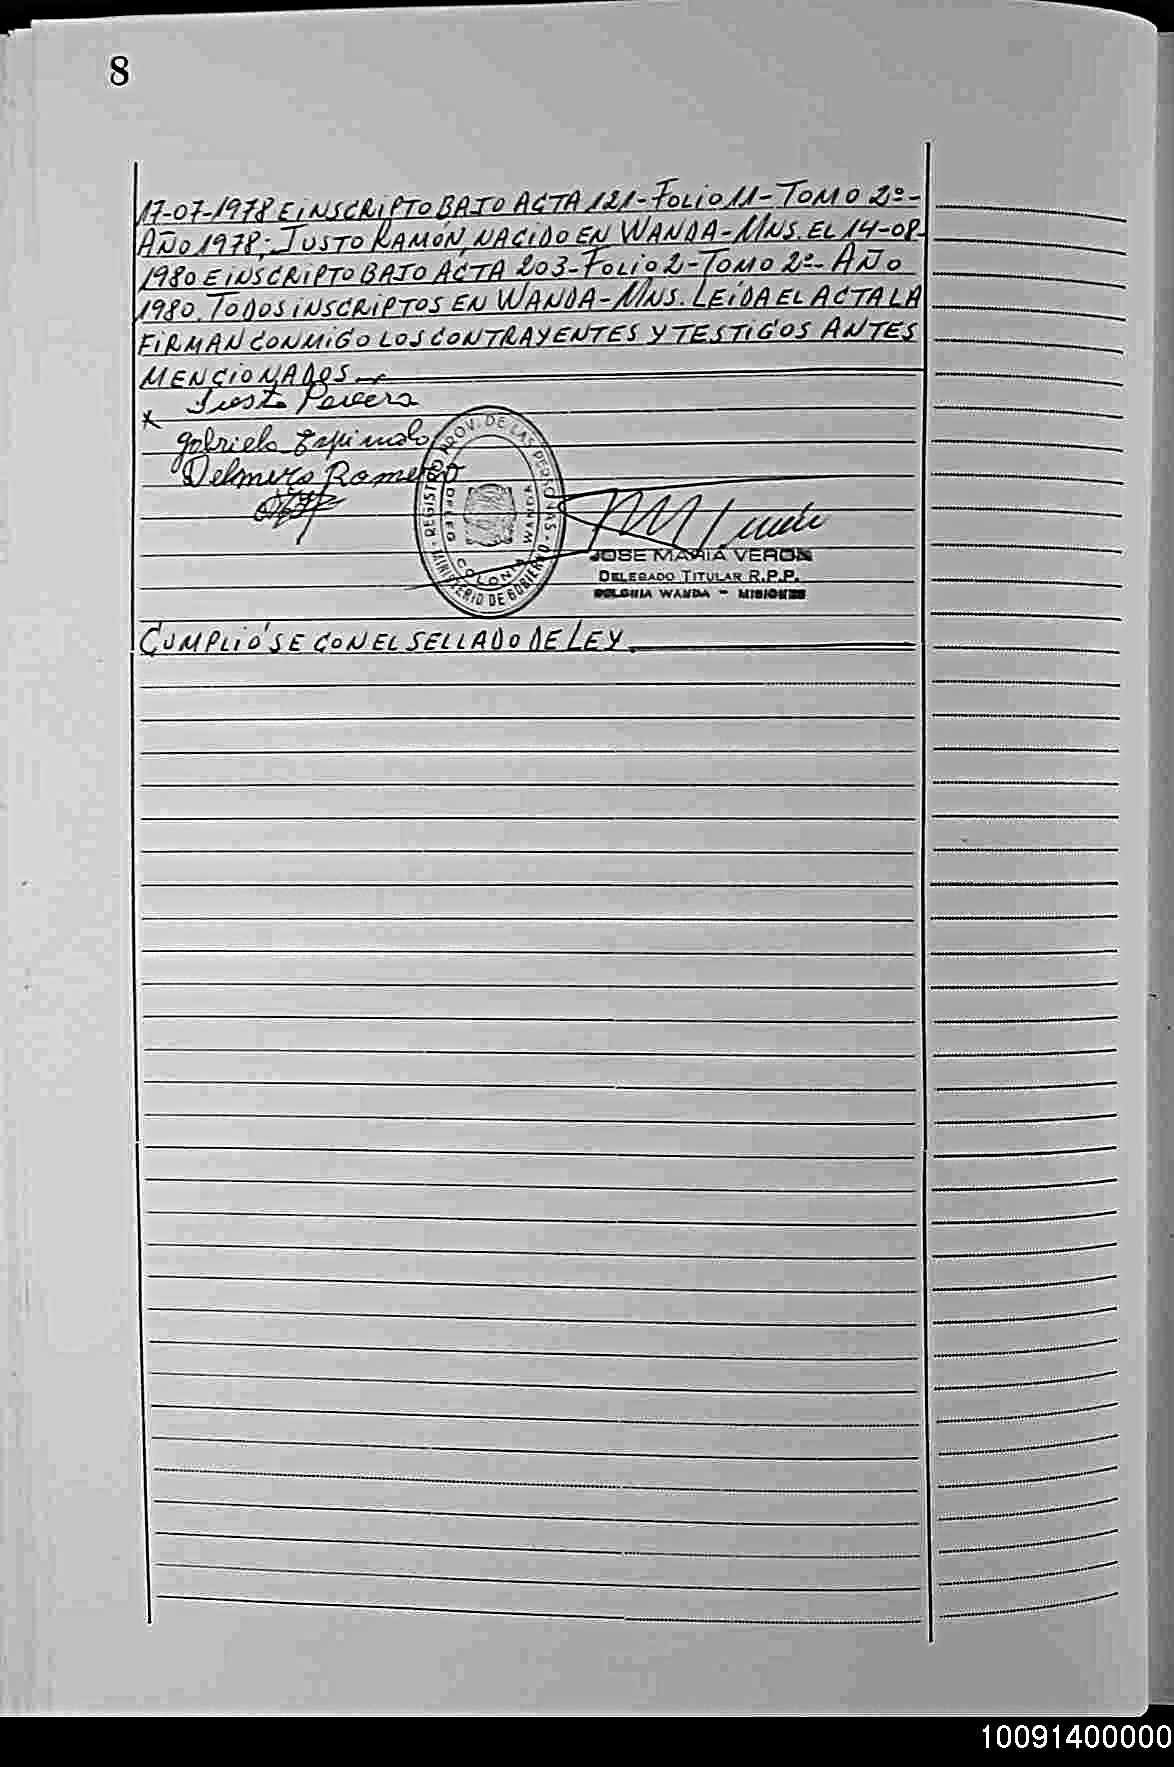 8
17-07-1978 E INSCRIPTO BAJO ACTA 121-FOLIO 11-TOMO 2º-
AÑO 1978; JUSTO RAMÓN, NACIDO EN WANDA-MNS. EL 14-08-
1980 E INSCRIPTO BAJO ACTA 203-FOLIO 2-TOMO 2º-AÑO
1980. TODOS INSCRIPTOS EN WANDA-MNS. LEÍDA EL ACTA LA
FIRMAN CONMIGO LOS CONTRAYENTES Y TESTIGOS ANTES
MENCIONADOS.
Justo
Gabriela Espinola
Delmiro Romero
REGISTRO PROV. DE LAS PERSONAS
DELEG. COLONIA WANDA
MINISTERIO DE GOBIERNO
JOSE MARIA VERON
DELEGADO TITULAR R.P.P.
COLONIA WANDA - MISIONES
CUMPLIÓSE CON EL SELLADO DE LEY.
10091400000